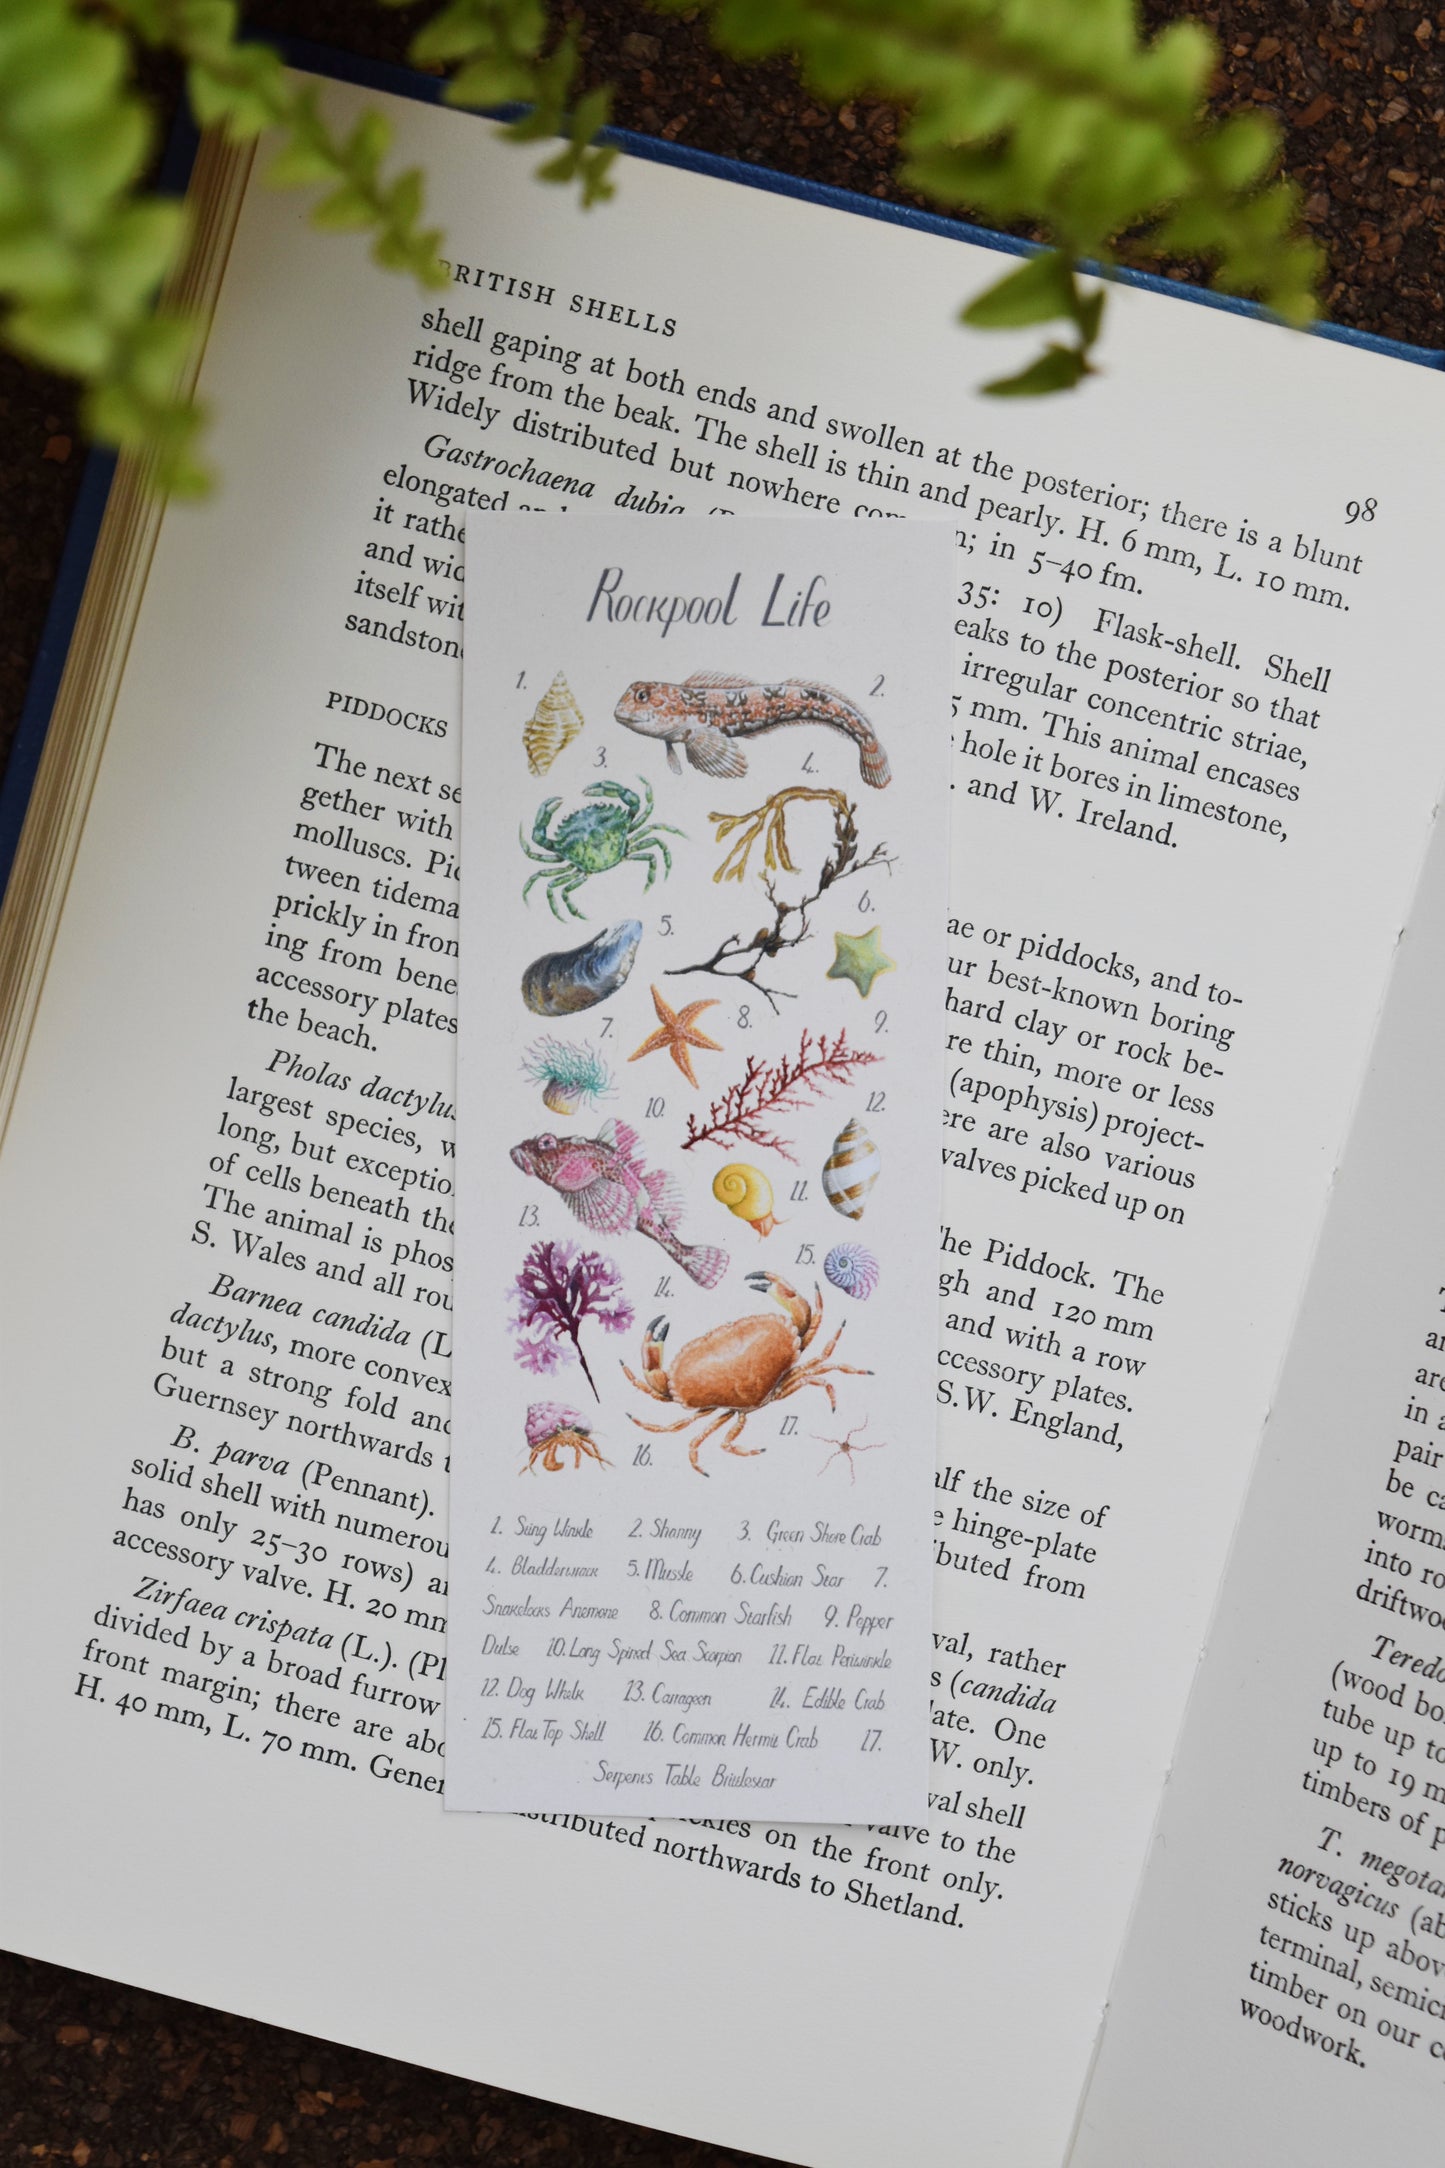 BRITISH SHELLS
98
shell gaping at both ends and swollen at the posterior; there is a blunt
ridge from the beak. The shell is thin and pearly. H. 6 mm, L. 10 mm.
Widely distributed but nowhere com n; in 5–40 fm.
Gastrochaena dubia 35: 10) Flask-shell. Shell
elongated and eaks to the posterior so that
it rathe irregular concentric striae,
and wid 5 mm. This animal encases
itself wit hole it bores in limestone,
sandston . and W. Ireland.
PIDDOCKS
The next se ae or piddocks, and to-
gether with ur best-known boring
molluscs. Pid hard clay or rock be-
tween tidema re thin, more or less
prickly in fron (apophysis) project-
ing from bene ere are also various
accessory plates valves picked up on
the beach.
Pholas dactylus The Piddock. The
largest species, w gh and 120 mm
long, but exceptio and with a row
of cells beneath the ccessory plates.
The animal is phos S.W. England,
S. Wales and all rou
Barnea candida (L alf the size of
dactylus, more convex e hinge-plate
but a strong fold and ibuted from
Guernsey northwards t
B. parva (Pennant). val, rather
solid shell with numerou s (candida
has only 25–30 rows) a late. One
accessory valve. H. 20 mm W. only.
Zirfaea crispata (L.). (Pl val shell
divided by a broad furrow valve to the
front margin; there are abo ickles on the front only.
H. 40 mm, L. 70 mm. Gener stributed northwards to Shetland.
Rockpool Life
1.
2.
3.
4.
5.
6.
7.
8.
9.
10.
12.
11.
13.
15.
14.
17.
16.
1. Sting Winkle 2. Shanny 3. Green Shore Crab
4. Bladderwrack 5. Mussle 6. Cushion Star 7.
Snakelocks Anemone 8. Common Starfish 9. Pepper
Dulse 10. Long Spined Sea Scorpion 11. Flat Periwinkle
12. Dog Whelk 13. Carrageen 14. Edible Crab
15. Flat Top Shell 16. Common Hermit Crab 17.
Serpents Table Brittlestar
in a
pair
be ca
worm
into ro
driftwo
Teredo
(wood bo
tube up to
up to 19 m
timbers of p
T. megota
norvagicus (ab
sticks up abov
terminal, semicir
timber on our c
woodwork.